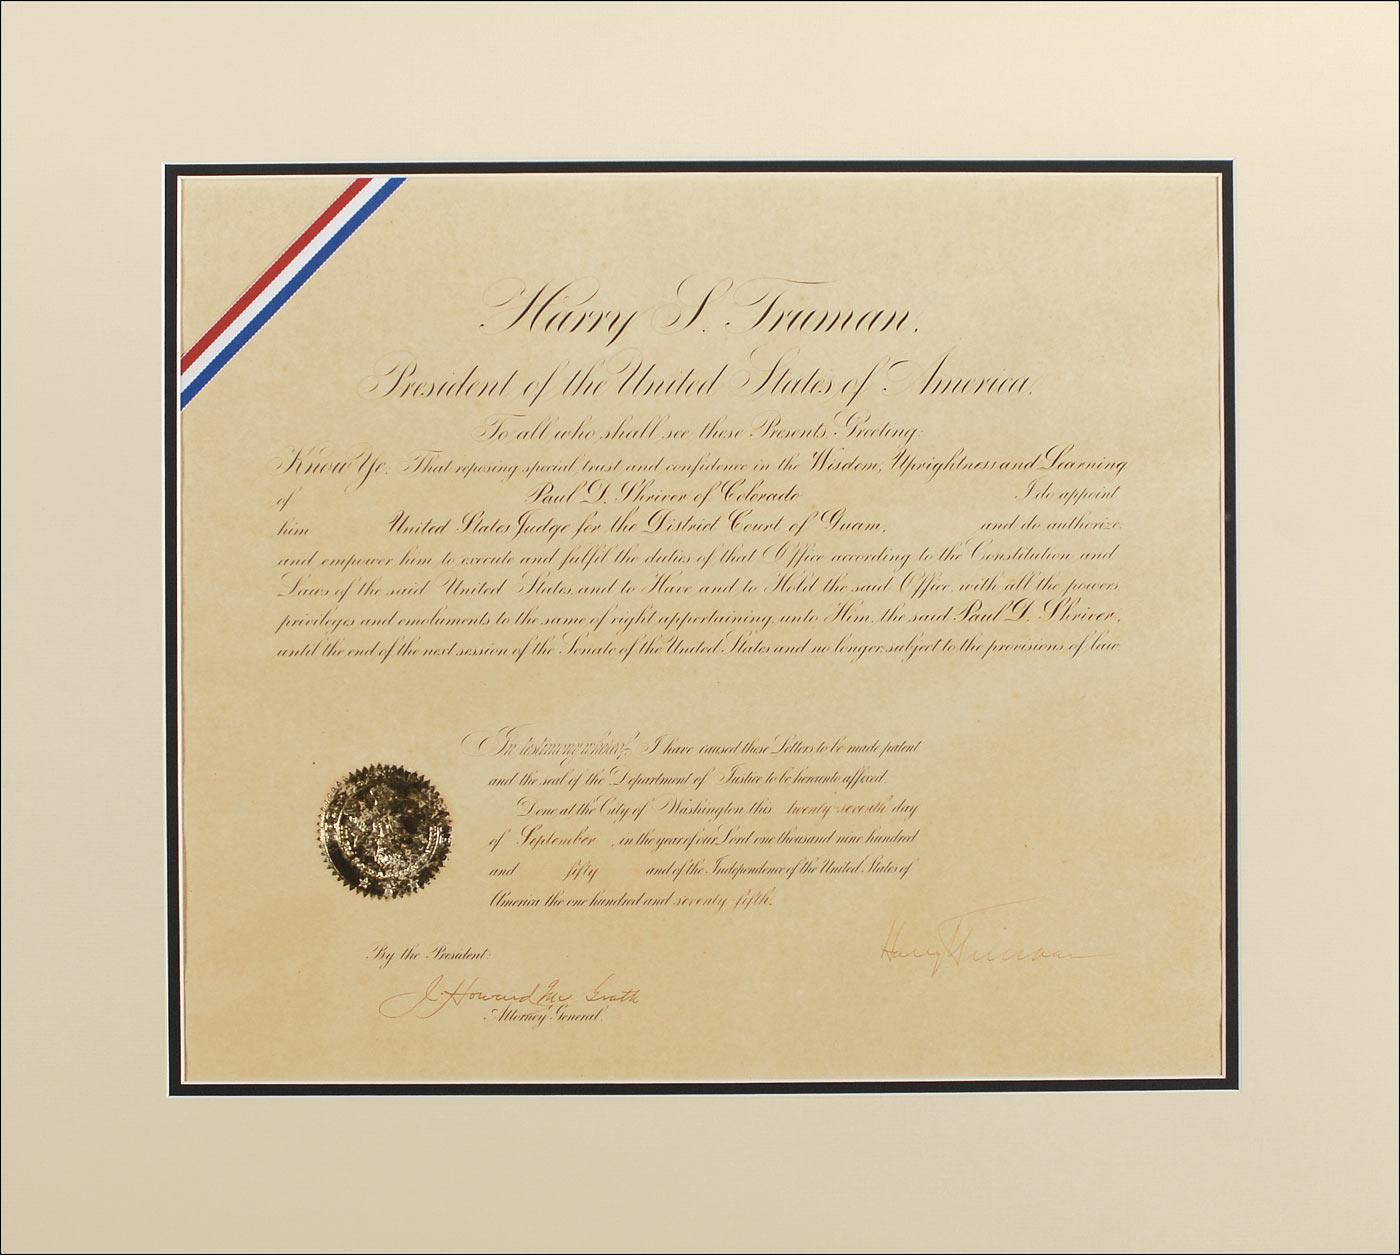 Harry S. Truman,
President of the United States of America.
To all who shall see these Presents, Greeting:
Know Ye; That reposing special trust and confidence in the Wisdom, Uprightness and Learning
of Paul D. Shriver of Colorado I do appoint
him United States Judge for the District Court of Guam, and do authorize
and empower him to execute and fulfil the duties of that Office according to the Constitution and
Laws of the said United States, and to Have and to Hold the said Office, with all the powers,
privileges and emoluments to the same of right appertaining, unto Him, the said Paul D. Shriver,
until the end of the next session of the Senate of the United States and no longer, subject to the provisions of law.
In testimony whereof, I have caused these Letters to be made patent
and the seal of the Department of Justice to be hereunto affixed.
Done at the City of Washington this twenty-seventh day
of September, in the year of our Lord one thousand nine hundred
and fifty and of the Independence of the United States of
America the one hundred and seventy-fifth.
Harry S Truman
By the President:
J. Howard McGrath
Attorney General.